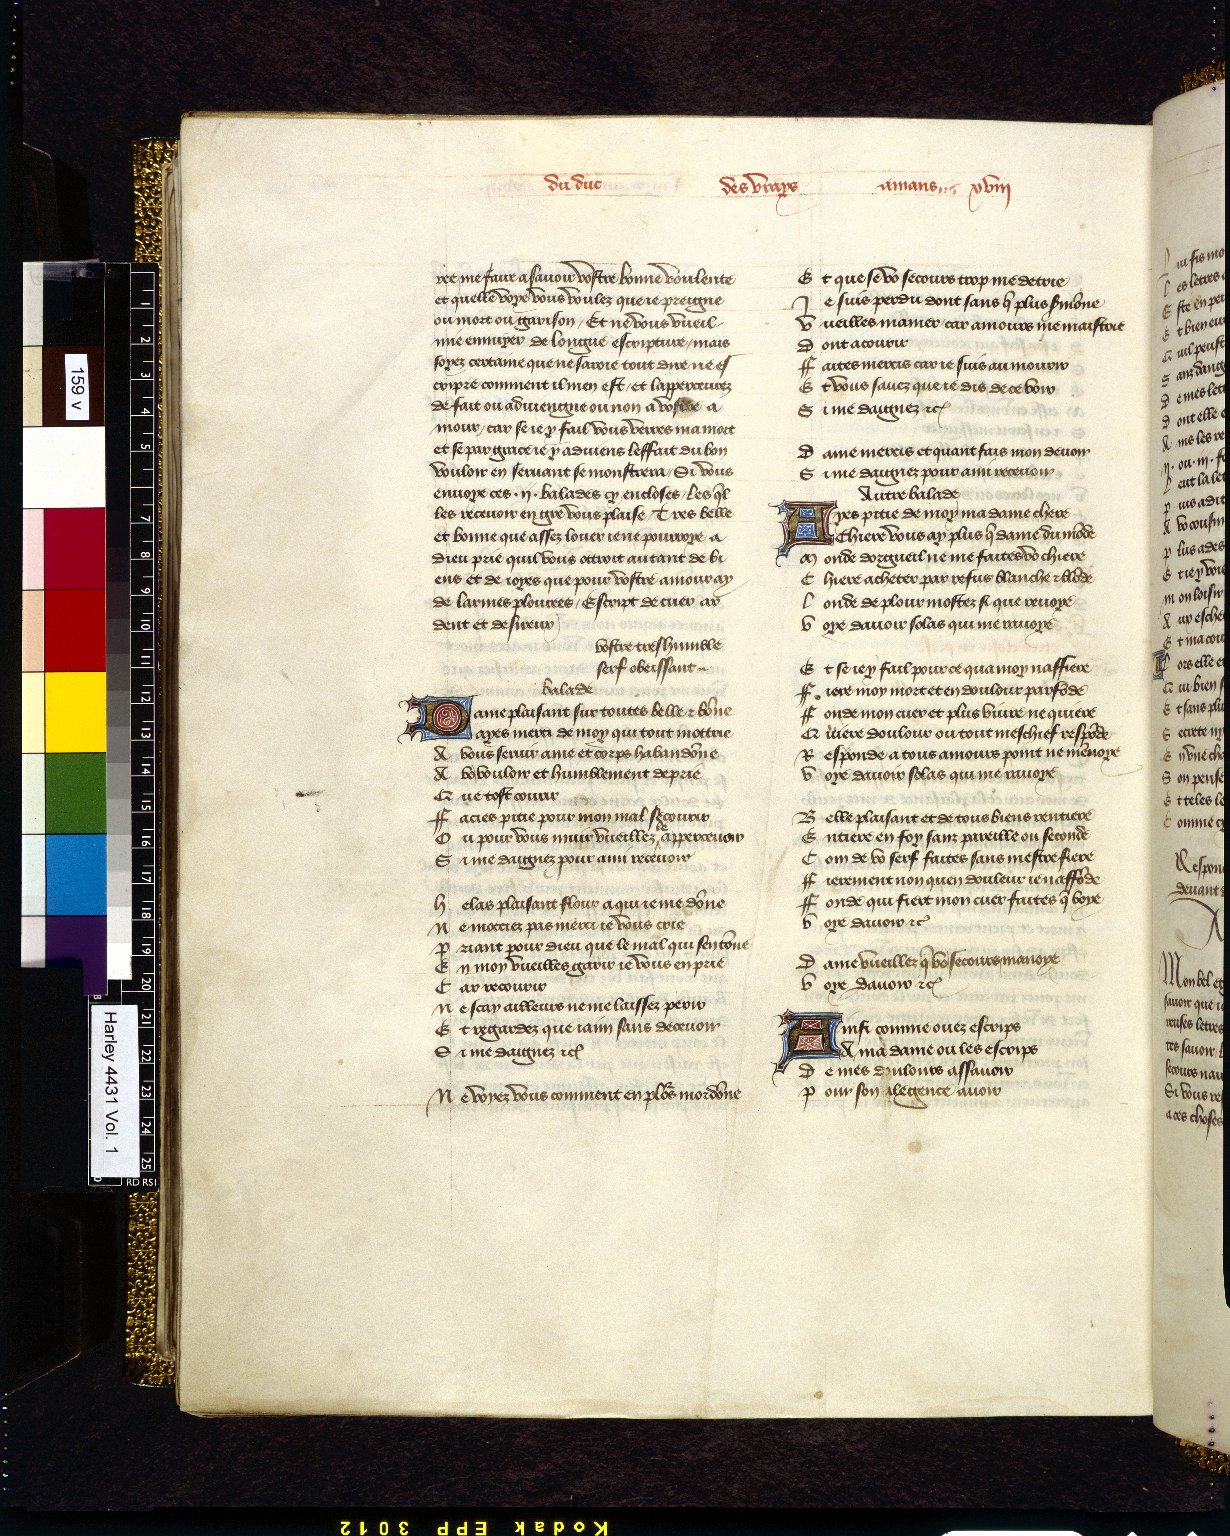 du duc des vrays amans xviii
tre me faire assavoir vostre bonne voulente
et quelle voye vous voulez que ie preigne
ou mort ou garison / Et ne vous vueil
mie ennuyer de longue escripture / mais
soyez certaine que ne saroie tout dire ne es
cripre comment il men est / et lappercevrez
de fait ou adviengne ou non a vostre a
mour / car se ie y fail vous verres ma mort
et se par grace ie y adviens leffait du bon
vouloir en servant se monstrera / Si vous
envoye ces .ii. balades cy encloses / les q̄l
les recevoir en gre vous plaise Tres belle
et bonne que assez louer ie ne pourroye a
dieu prie quil vous ottroit autant de bi
ens et de ioyes que pour vostre amour ay
de larmes plourees / Escript de cuer ar
dent et desireux
vostre treshumble
serf obeissant
balade
Dame plaisant sur toutes belle ⁊ bōne
ayes merci de moy qui tout mottrie
A vous servir ame et corps habandōne
A vo vouloir et humblement deprie
Que tost courir
Faciés pitie pour mon mal secourir
Ou pour vous muir vueillez le appercevoir
Si me daignez pour ami recevoir
Helas plaisant flour a qui ie me dōne
Ne mocciez pas merci ie vous crie
Priant pour dieu que le mal qui sentōne
En moy vueilles garir ie vous en prie
Car recourir
Ne scay ailleurs ne me laissez perir
Et regardez que iaim sans decevoir
Si me daignez ⁊c̄
Ne voyez vous comment en plōs mordōne
Et que se vo secours trop me detrie
Je suis perdu dont sans q̄ plus sermōne
Vueilles mamer car amours me maistrie
Dont acourir
Faites mercis car ie suis au mourir
Et vous savez que ie dis de ce voir
Si me daignez ⁊c̄
Dame mercis et quant fais mon devoir
Si me daignez pour ami recevoir
Autre balade
Ayes pitie de moy ma dame chere
Chiere vous ay plus q̄ dame du mōde
Monde dorgueil ne me faites vo chiere
Chiere acheter par refus blanche ⁊ blōde
Londe de plour mostez si que revoye
Voye davoir solas qui me ravoye
Et se iey fail pour ce qua moy naffiere
Fiere moy mort et en doulour parfōde
Fonde mon cuer et plus vivre ne quiere
Quiere doulour ou tout meschief respōde
Responde a tous amours point ne mēvoye
Voye davoir solas qui me ravoye
Belle plaisant et de tous biens rentiere
Entiere en foy sanz pareille ou seconde
Com de vo serf faites sans mestre fiere
Fierement non quen douleur ie naffōde
Fonde qui fiert mon cuer faites q̄ voye
Voye davoir ⁊c̄
Dame vueillez q̄ vo secours mavoye
Voye davoir ⁊c̄
Ainsi comme ouez escrips
A ma dame ou les escrips
De mes doulours assavoir
Pour son alegence avoir
159 v
Harley 4431 Vol. 1
Kodak EPP 3012